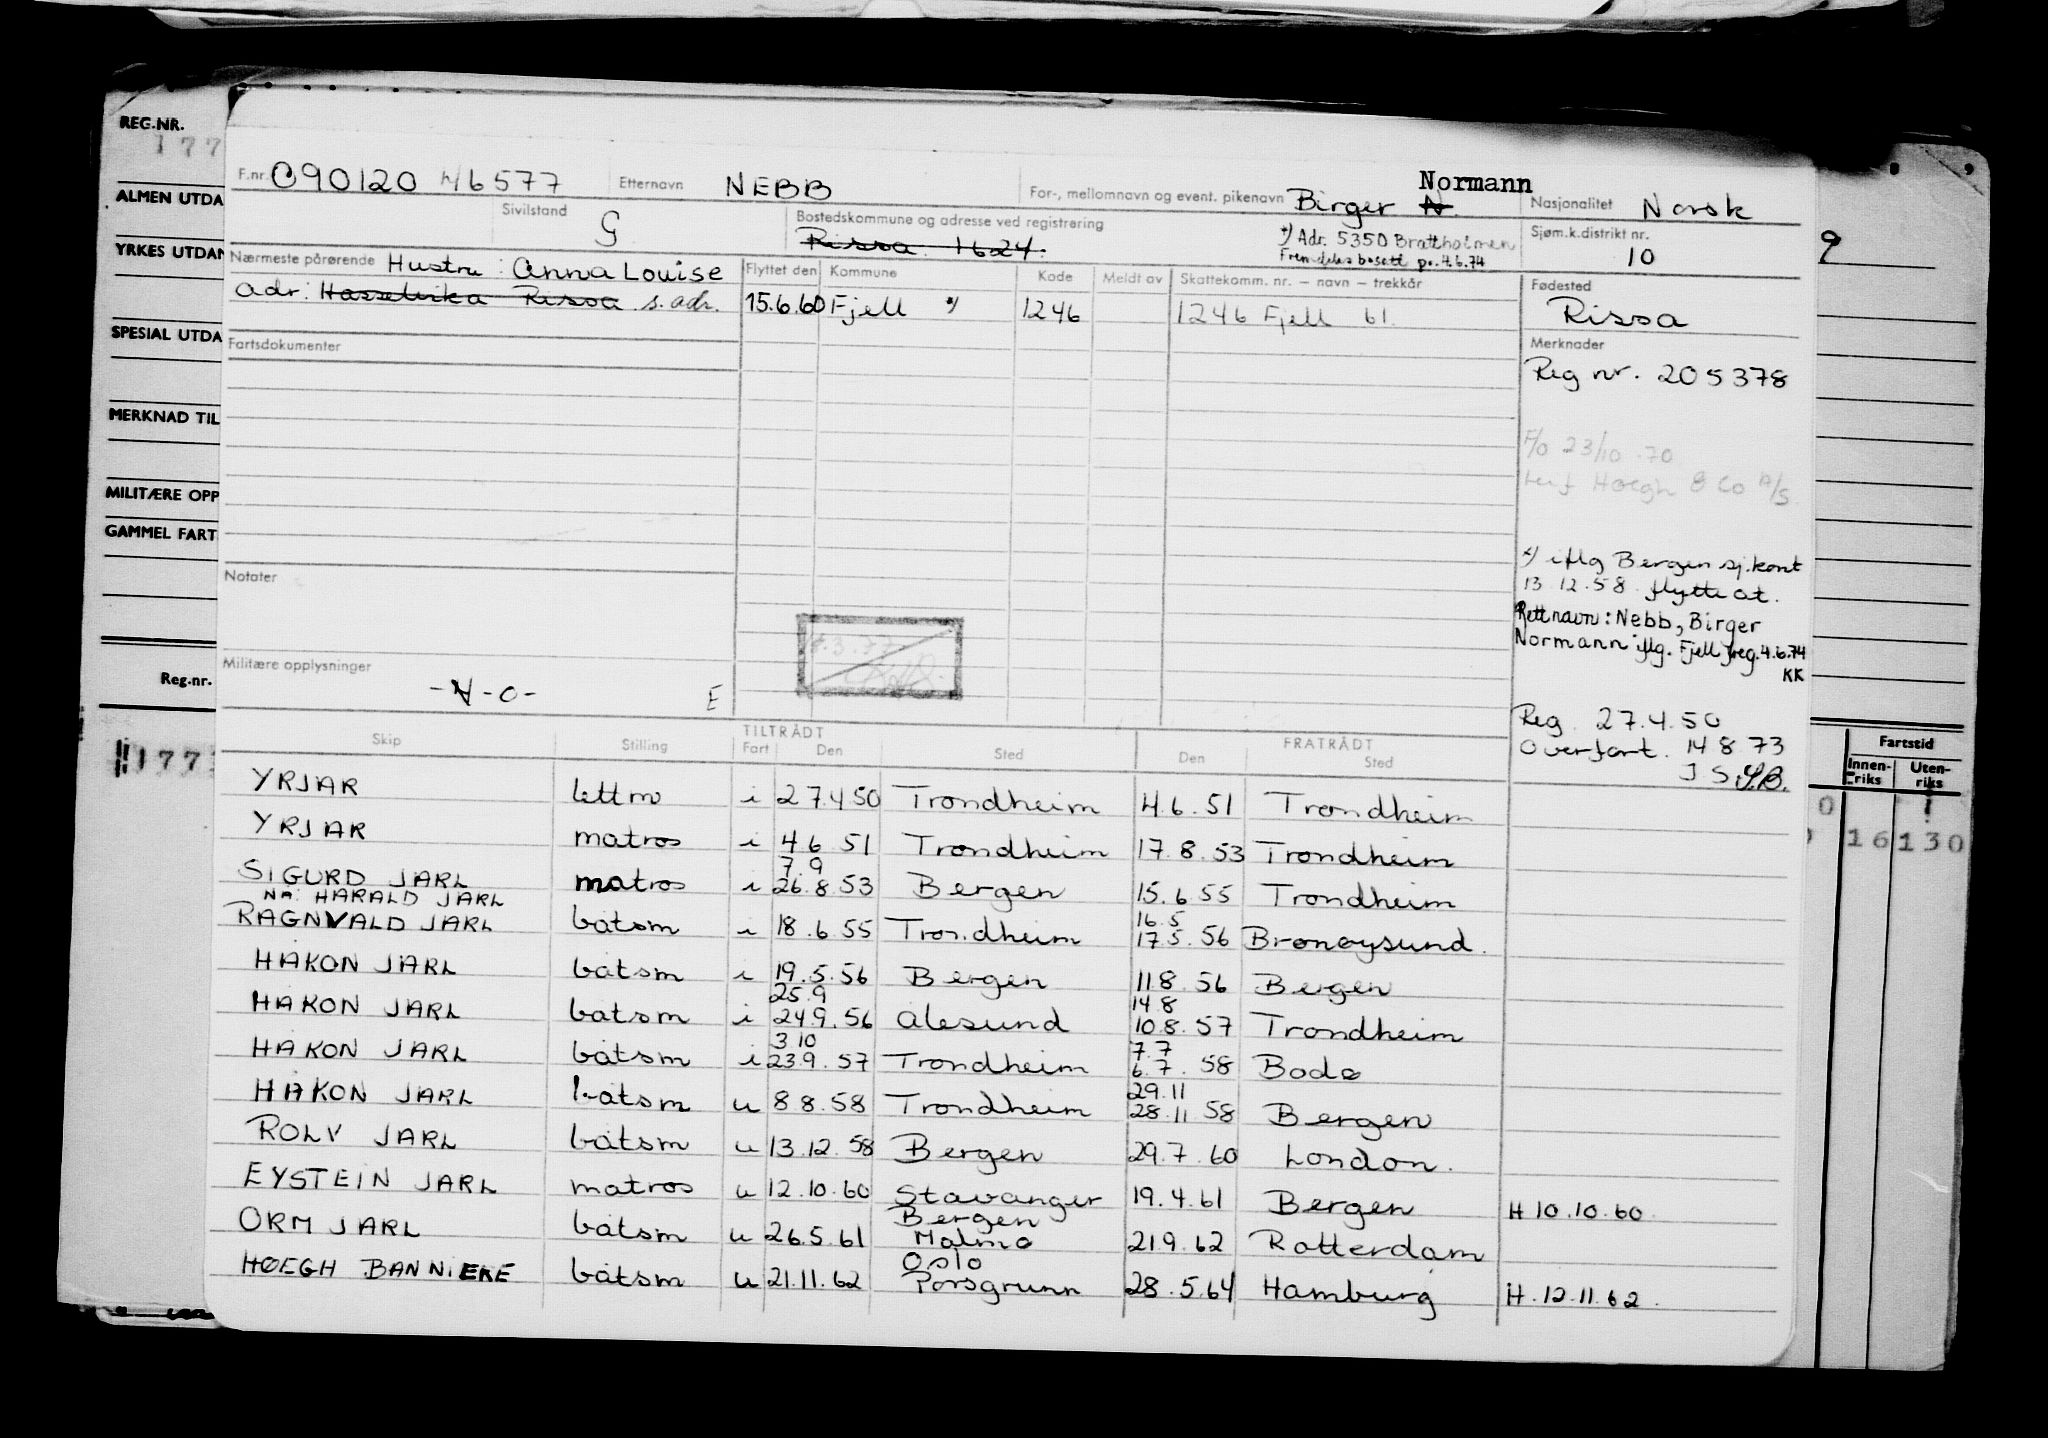 REG.NR.
177
ALMEN UTDA
YRKES UTDAN
SPESIAL UTDA
MERKNAD TIL
MILITÆRE OPP
GAMMEL FART
Reg.nr.
177
F.nr. 090120 46577 Etternavn NEBB For-, mellomnavn og event. pikenavn Birger N. Normann Nasjonalitet Norsk
Sivilstand G Bostedskommune og adresse ved registrering Rissa 1624. *) Adr. 5350 Brattholmen Sjøm.k.distrikt nr. 10
Fremdeles bosatt pr. 4.6.74
9
Nærmeste pårørende Hustru: Anna Louise Flyttet den Kommune Kode Meldt av Skattekomm. nr. – navn – trekkår Fødested
adr. Hasselvika Rissa s. adr. 15.6.60 Fjell *) 1246 1246 Fjell 61. Rissa
Fartsdokumenter Merknader
Reg nr. 205378
F/o 23/10.70
Leif Hoegh & Co A/S
*) iflg Bergen sj.kont
13 12.58 flytte at.
Rett navn: Nebb, Birger
Normann iflg. Fjell freg. 4.6.74
KK
Notater
Militære opplysninger
-V-0- E
Reg. 27.4.50
Overført. 14 8.73
Skip Stilling TILTRÅDT Fart Den Sted FRATRÅDT Den Sted
Fartstid
Innen-riks Uten-riks
16 130
YRJAR lettm i 27.4 50 Trondheim 4.6.51 Trondheim
YRJAR matros i 4.6 51 Trondheim 17.8.53 Trondheim
7.9
SIGURD JARL matros i 26.8.53 Bergen 15.6.55 Trondheim
NÅ: HARALD JARL
16.5
RAGNVALD JARL båtsm i 18.6.55 Trondheim 17.5.56 Brønøysund.
HÅKON JARL båtsm i 19.5.56 Bergen 11.8.56 Bergen
25.9 14 8
HÅKON JARL båtsm i 24.9.56 Ålesund 10.8.57 Trondheim
3 10 7.7
HÅKON JARL båtsm i 23.9.57 Trondheim 6.7.58 Bodø
29.11
HÅKON JARL båtsm u 8 8.58 Trondheim 28.11 58 Bergen
ROLV JARL båtsm u 13.12.58 Bergen 29.7.60 London.
EYSTEIN JARL matros u 12.10.60 Stavanger 19.4.61 Bergen H 10.10.60
Bergen
ORM JARL båtsm u 26.5.61 Malmø 21.9.62 Rotterdam
Oslo
HØEGH BANNIERE båtsm u 21.11.62 Porsgrunn 28.5.64 Hamburg H.12.11.62.